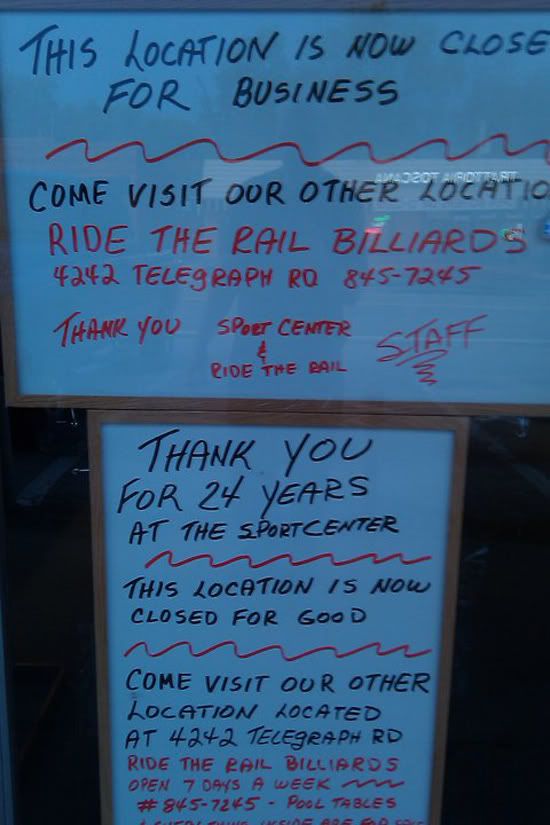 THIS LOCATION IS NOW CLOSE
FOR BUSINESS
TRATTORIA TOSCANA
COME VISIT OUR OTHER LOCATIO
RIDE THE RAIL BILLIARDS
4242 TELEGRAPH RD 845-7245
THANK YOU SPORT CENTER
&
RIDE THE RAIL
STAFF
THANK YOU
FOR 24 YEARS
AT THE SPORTCENTER
THIS LOCATION IS NOW
CLOSED FOR GOOD
COME VISIT OUR OTHER
LOCATION LOCATED
AT 4242 TELEGRAPH RD
RIDE THE RAIL BILLIARDS
OPEN 7 DAYS A WEEK
# 845-7245 - POOL TABLES
& EVERYTHING INSIDE ARE FOR SALE